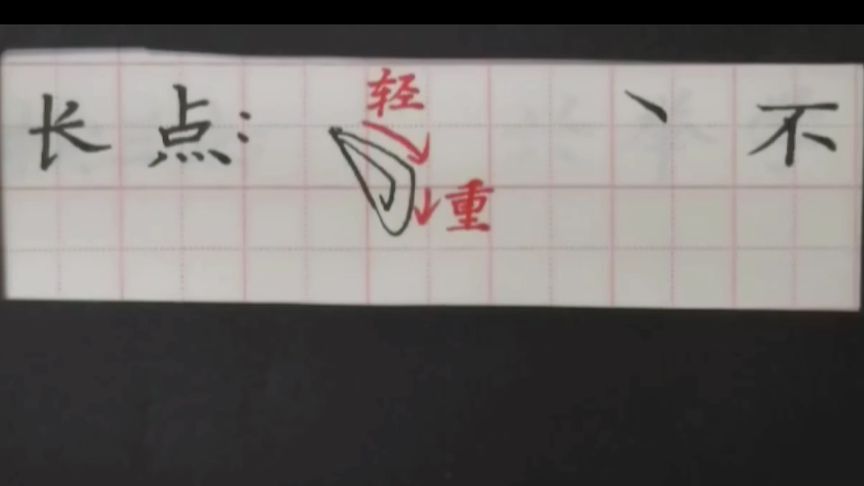 长点: 轻 丶 不
重